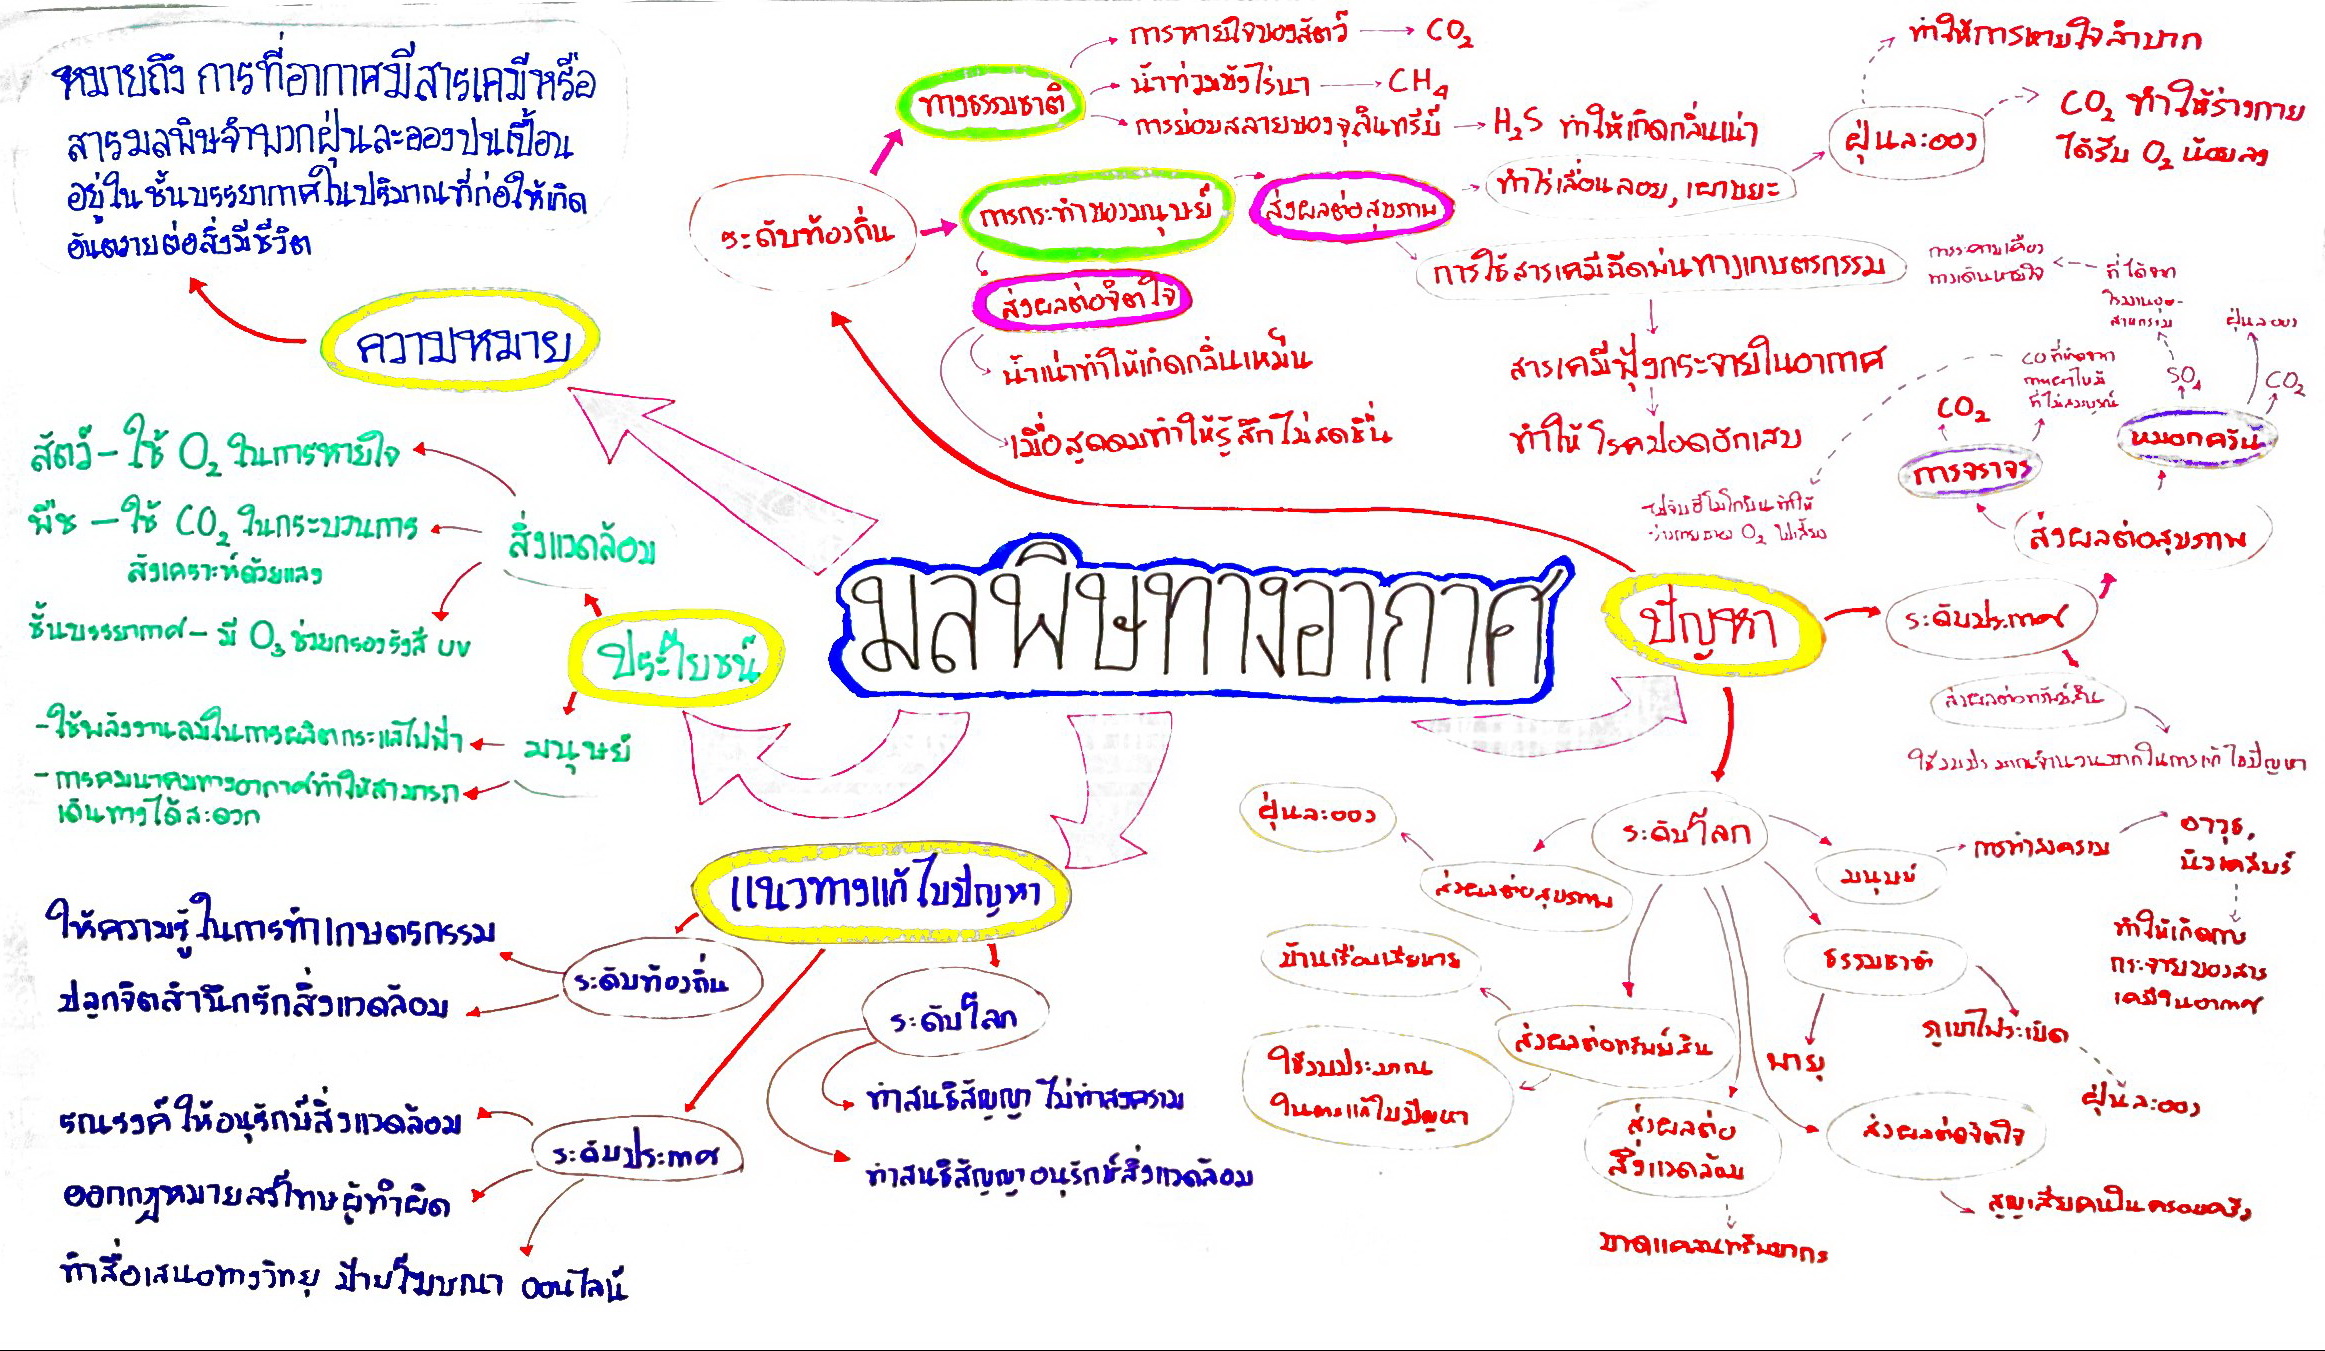 มลพิษทางอากาศ
ความหมาย
หมายถึง การที่อากาศมีสารเคมีหรือ
สารมลพิษจำพวกฝุ่นละอองปนเปื้อน
อยู่ในชั้นบรรยากาศในปริมาณที่ก่อให้เกิด
อันตรายต่อสิ่งมีชีวิต
ประโยชน์
สิ่งแวดล้อม
สัตว์ – ใช้ O₂ ในการหายใจ
พืช – ใช้ CO₂ ในกระบวนการ
สังเคราะห์ด้วยแสง
ชั้นบรรยากาศ – มี O₃ ช่วยกรองรังสี UV
มนุษย์
- ใช้พลังงานลมในการผลิตกระแสไฟฟ้า
- การคมนาคมทางอากาศทำให้สามารถ
เดินทางได้สะดวก
แนวทางแก้ไขปัญหา
ระดับท้องถิ่น
ให้ความรู้ในการทำเกษตรกรรม
ปลูกจิตสำนึกรักสิ่งแวดล้อม
ระดับประเทศ
รณรงค์ให้อนุรักษ์สิ่งแวดล้อม
ออกกฎหมายลงโทษผู้ทำผิด
ทำสื่อเสนอทางวิทยุ ป้ายโฆษณา ออนไลน์
ระดับโลก
ทำสนธิสัญญา ไม่ทำสงคราม
ทำสนธิสัญญาอนุรักษ์สิ่งแวดล้อม
ปัญหา
ระดับท้องถิ่น
ทางธรรมชาติ
การหายใจของสัตว์ → CO₂
น้ำท่วมขังไร่นา → CH₄
การย่อยสลายของจุลินทรีย์ → H₂S ทำให้เกิดกลิ่นเน่า
การกระทำของมนุษย์
ส่งผลต่อสุขภาพ
ทำไร่เลื่อนลอย, เผาขยะ
ฝุ่นละออง
ทำให้การหายใจลำบาก
CO₂ ทำให้ร่างกาย
ได้รับ O₂ น้อยลง
การใช้สารเคมีฉีดพ่นทางเกษตรกรรม
สารเคมีฟุ้งกระจายในอากาศ
ทำให้โรคปอดอักเสบ
ส่งผลต่อจิตใจ
น้ำเน่าทำให้เกิดกลิ่นเหม็น
เมื่อสูดดมทำให้รู้สึกไม่สดชื่น
ระดับประเทศ
ส่งผลต่อสุขภาพ
การจราจร
CO₂
CO ที่เกิดจาก
การเผาไหม้
ที่ไม่สมบูรณ์
ไปจับฮีโมโกลบินทำให้
O₂
หมอกควัน
SO₄
ที่ได้จาก
โรงงานอุต-
สาหกรรม
การระคายเคือง
ทางเดินหายใจ
ฝุ่นละออง
CO₂
ส่งผลต่อทรัพย์สิน
ใช้งบประมาณจำนวนมากในการแก้ไขปัญหา
ระดับโลก
ส่งผลต่อสุขภาพ
ฝุ่นละออง
ส่งผลต่อทรัพย์สิน
บ้านเรือนเสียหาย
ใช้งบประมาณ
ในการแก้ไขปัญหา
ส่งผลต่อ
สิ่งแวดล้อม
ขาดแคลนทรัพยากร
ส่งผลต่อจิตใจ
สูญเสียคนในครอบครัว
ธรรมชาติ
พายุ
ภูเขาไฟระเบิด
ฝุ่นละออง
มนุษย์
การทำสงคราม
อาวุธ,
นิวเคลียร์
ทำให้เกิดการ
กระจายของสาร
เคมีในอากาศ